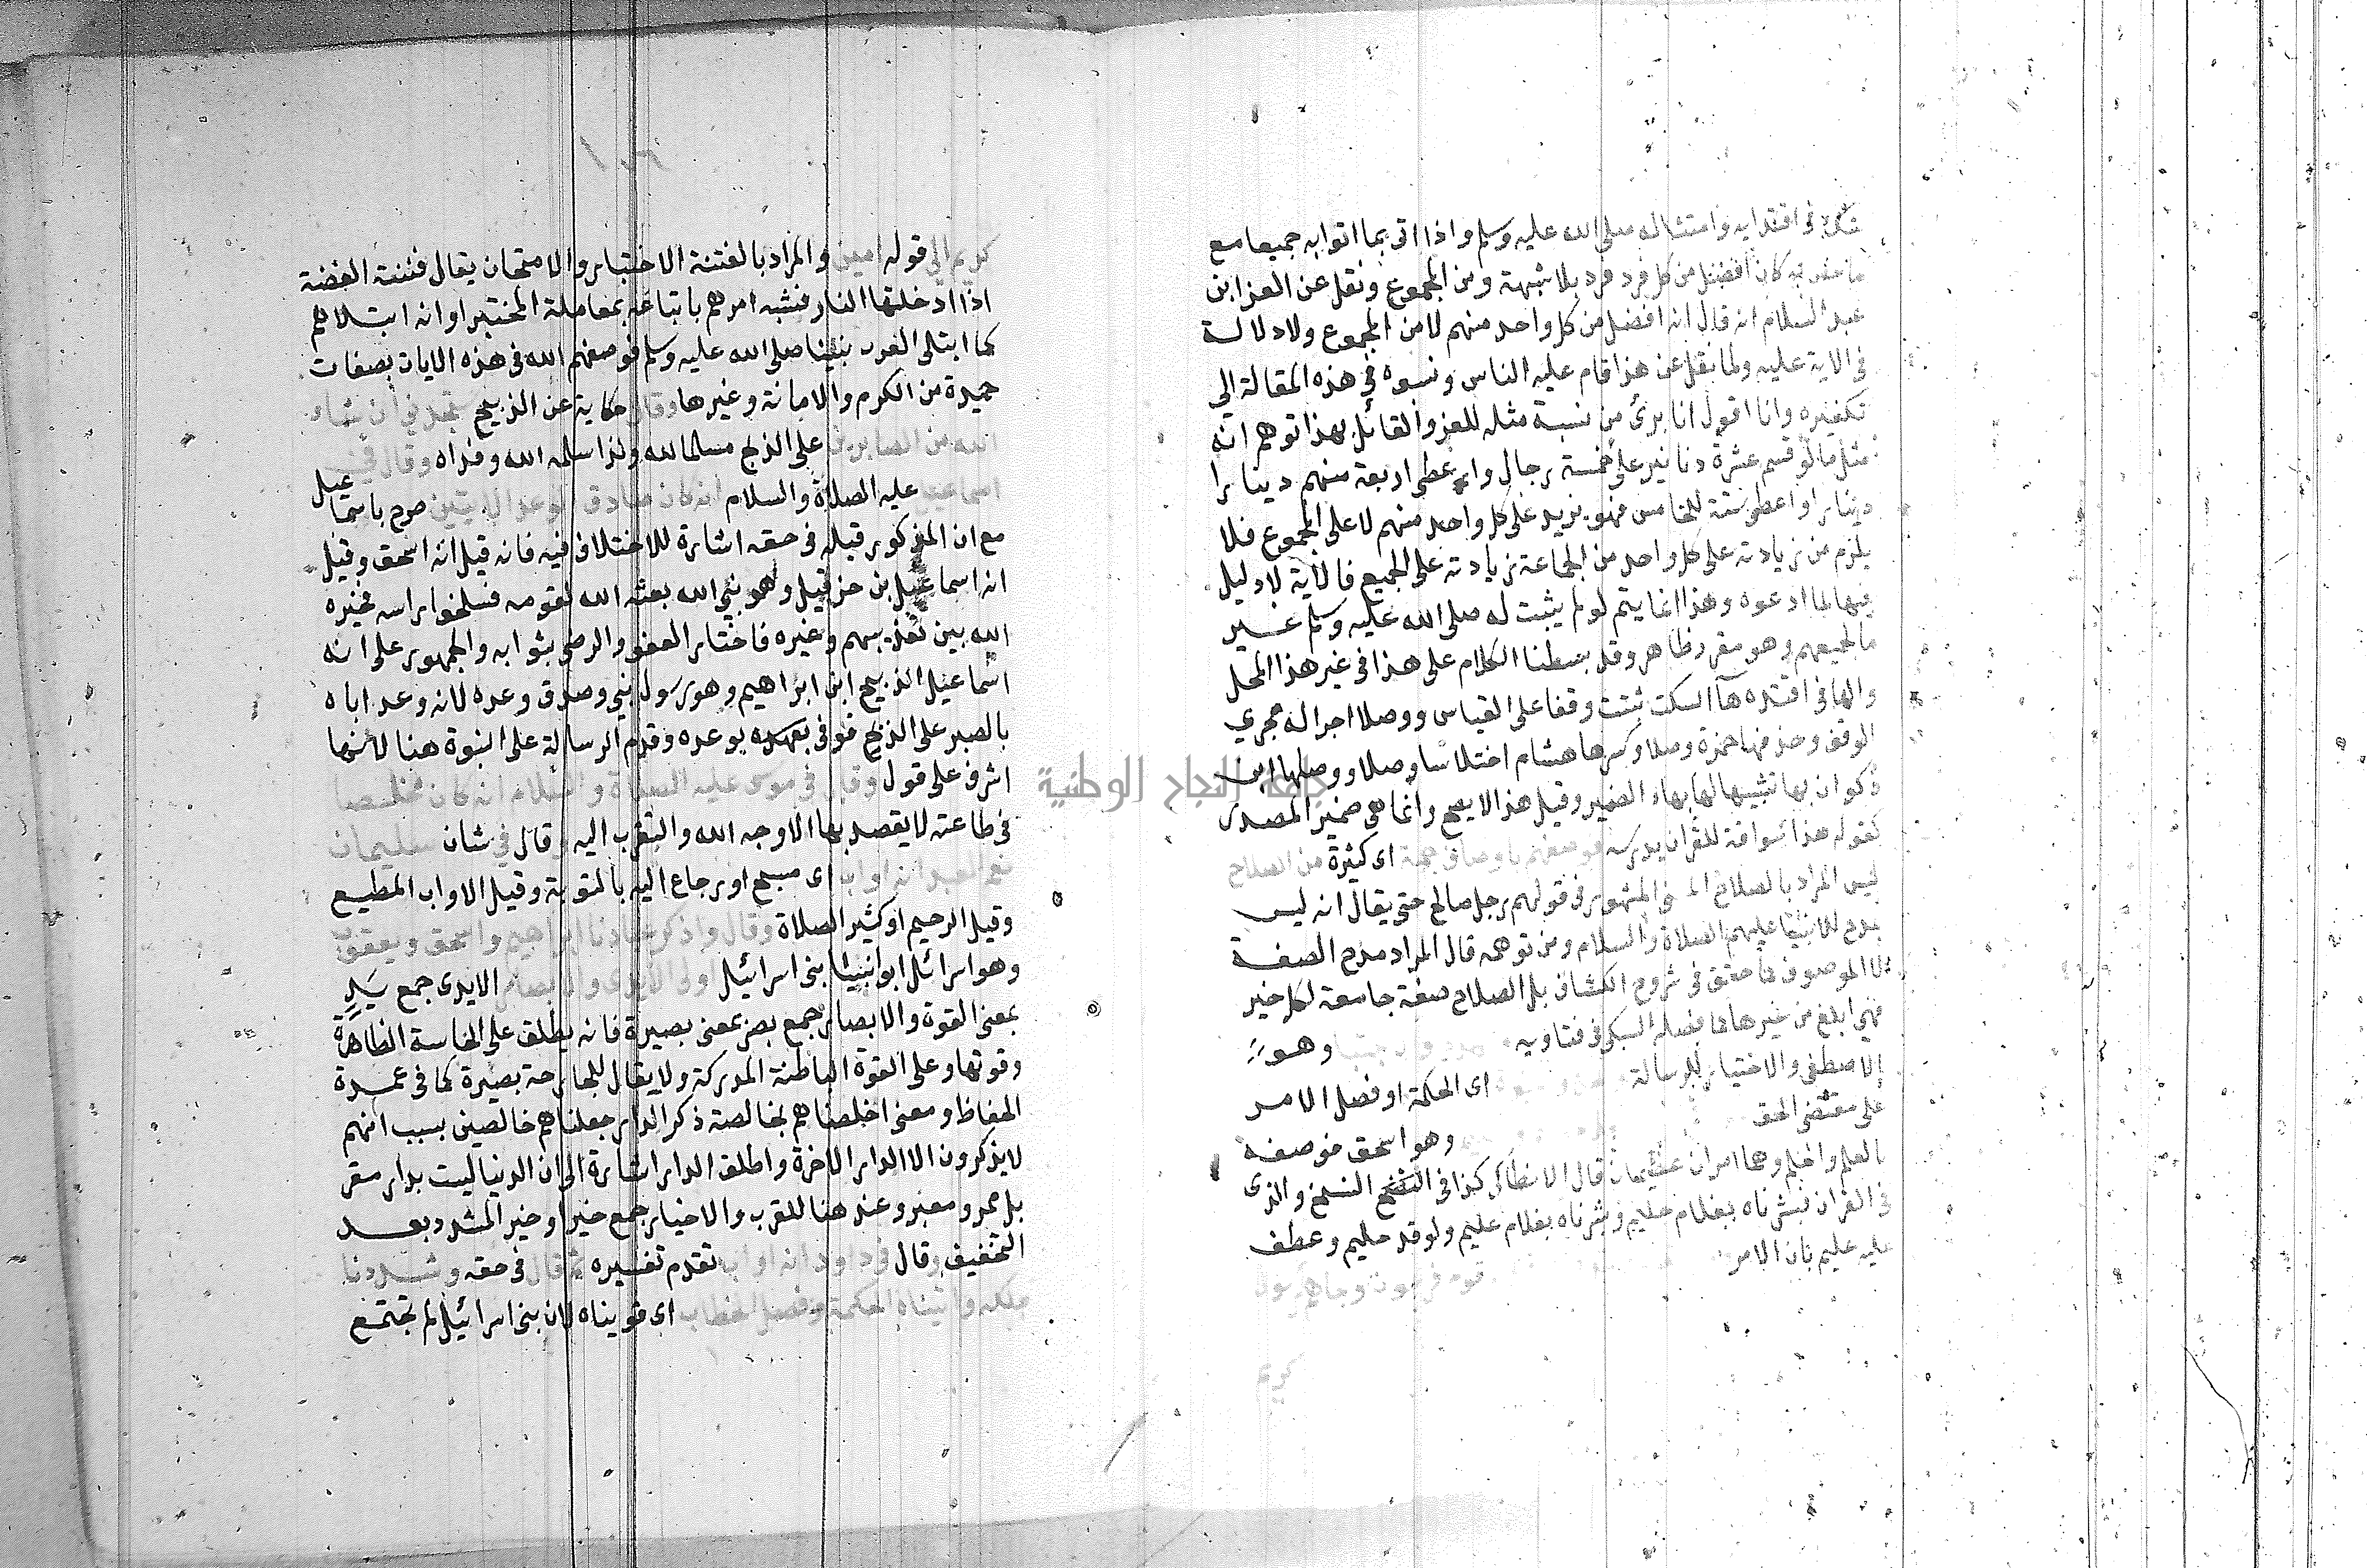 في اقتدايه وامتثاله صلى الله عليه وسلم واذا اتى بما اتوا به جميعا مع
كان افضل من كل فرد فرد بلا شبهة ومن المجموع ونقل عن العز ابن
عبد السلام انه قال انه افضل من كل واحد منهم لا من المجموع ولا دلالة
في الاية عليه ولما نقل عن هذا قام عليه الناس ونسبوه في هذه المقالة الى
تكفيره وانا اقول انا برئ من نسبة مثله للعز والقائل بهذا توهم انه
مثل ما لو قسم عشرة دنانير على خمسة رجال واعطى اربعة منهم دينارا
دينارا واعطى ستة للخامس فهو يزيد على كل واحد منهم لا على المجموع فلا
يلزم من زيادته على كل واحد من الجماعة زيادته على الجميع فالاية لا دليل
فيها لما ادعوه وهذا انما يتم لو لم يثبت له صلى الله عليه وسلم غير
ما لجميعهم وهو مقرر ظاهر وقد بسطنا الكلام على هذا في غير هذا المحل
والها في اقتده هآ السكت ثبتت وقفا على القياس ووصلا اجرا له مجرى
الوقف وحذفها حمزة وصلا وكسرها هشام اختلاسا وصلا ووصلها ابن
ذكوان بها تشبيها لها بهاء الضمير وقيل هذا لا يصح وانما هي ضمير المصدر
كقوله هذا سراقة للقران يدرسه فوصفهم باوصاف جمة اى كثيرة من الصلاح
ليس المراد بالصلاح المعنى المشهور في قولهم رجل صالح حتى يقال انه ليس
بمدح للانبيا عليهم الصلاة والسلام ومن توهمه قال المراد مدح الصفة
لا الموصوف كما حقق في شروح الكشاف بل الصلاح صفة جامعة لكل خير
فهي ابلغ من غيرها كما فصله السبكى في فتاويه وهو
الاصطفى والاختيار للرسالة اى الحكمة او فصل الامر
على مقتضى الحق
وهو اسحق فوصفه
بالعلم والحلم وهما امران عظيمان قال الانطاكى كذا في النسخ والذى
في القران فبشرناه بغلام حليم وبشرناه بغلام عليم ولو قد حليم وعطف
عليه عليم بان الامر
قوم فرعون وجاهم رسول
كريم
كريم الى قوله امين والمراد بالفتنة الاختبار والامتحان يقال فتنت الفضة
اذا ادخلتها النار فشبه امرهم باتباعه بمعاملة المختبر او انه ابتلاهم
كما ابتلى العرب بنبينا صلى الله عليه وسلم فوصفهم الله في هذه الايات بصفات
حميدة من الكرم والامانة وغيرها وقال حكاية عن الذبيح ستجدني ان شاء
الله من الصابرين على الذبح مسلما لله ولذا سلمه الله وفداه وقال في
اسماعيل عليه الصلاة والسلام انه كان صادق الوعد الايتين صرح باسماعيل
مع ان المذكور قبله في حقه اشارة للاختلاف فيه فانه قيل انه اسحق وقيل
انه اسماعيل بن حزقيل وهو نبي الله بعثه الله لقومه فسلخوا راسه فخيره
الله بين تعذيبهم وغيره فاختار العفو والرضى بثوابه والجمهور على انه
اسماعيل الذبيح ابن ابراهيم وهو رسول نبي وصدق وعده لانه وعد اباه
بالصبر على الذبح فوفى بعهده بوعده وقدم الرسالة على النبوة هنا لانها
اشرف على قول وقال في موسى عليه الصلاة والسلام انه كان مخلصا
في طاعته لا يقصد بها الا وجه الله والتقرب اليه وقال في شان سليمان
نعم العبد انه اواب اى مسبح او رجاع اليه بالتوبة وقيل الاواب المطيع
وقيل الرحيم او كثير الصلاة وقال واذكر عبادنا ابراهيم واسحق ويعقوب
وهو اسرائل ابو انبيا بنى اسرائيل اولى الايدى والابصار الايدى جمع يَدٍ
بمعنى القوة والابصار جمع بصر بمعنى بصيرة فانه يطلق على الحاسة الظاهرة
وقوتها وعلى القوة الباطنة المدركة ولا يقال للجارحة بصيرة كما في عمدة
الحفاظ ومعنى اخلصناهم بخالصة ذكر الدار جعلناهم خالصين بسبب انهم
لا يذكرون الا الدار الاخرة واطلق الدار اشارة الى ان الدنيا ليست بدار مقر
بل ممر ومعبر وعند هنا للقرب والاخيار جمع خير او خير المشدد بعد
التخفيف وقال في داود انه اواب تقدم تفسيره ثم قال في حقه وشددنا
ملكه واتيناه الحكمة وفصل الخطاب اى قويناه لان بنى اسرائيل لم تجتمع
جامعة النجاح الوطنية